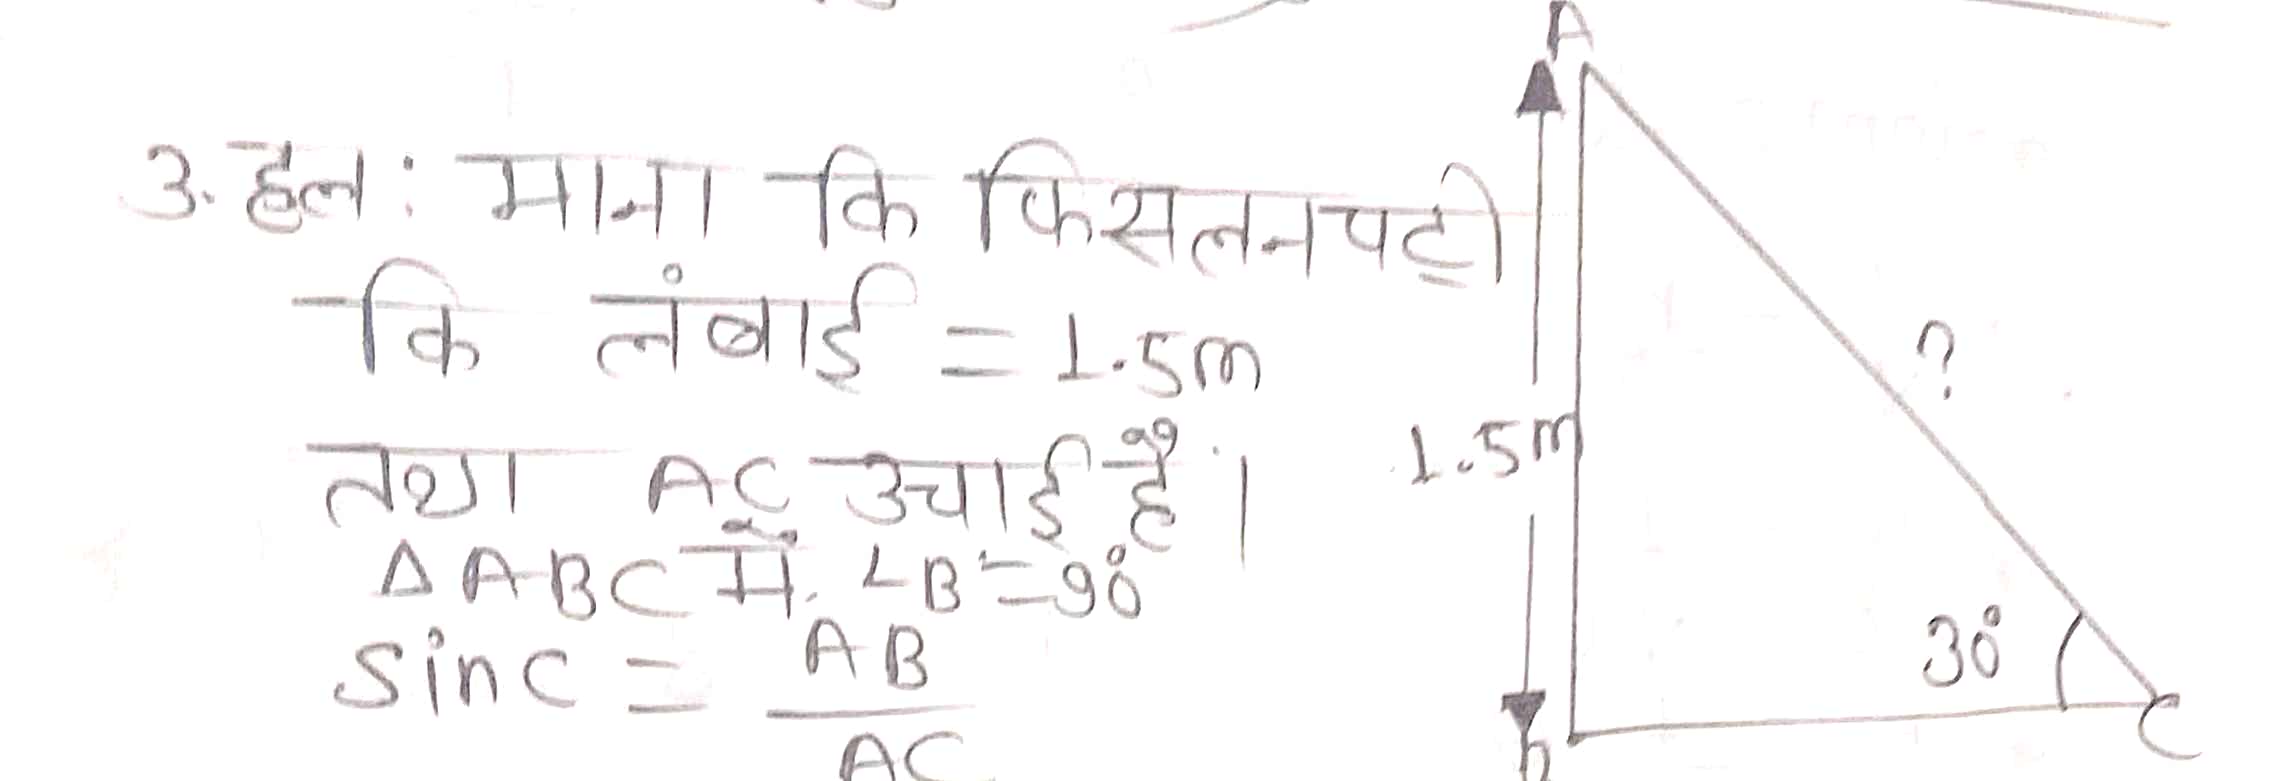 3. हल: माना कि फिसलनपट्टी
कि लंबाई = 1.5m
तथा AC उचाई है।
Δ ABC में. ∠B = 90°
sin C = AB
AC
A
1.5m
?
30°
B
C